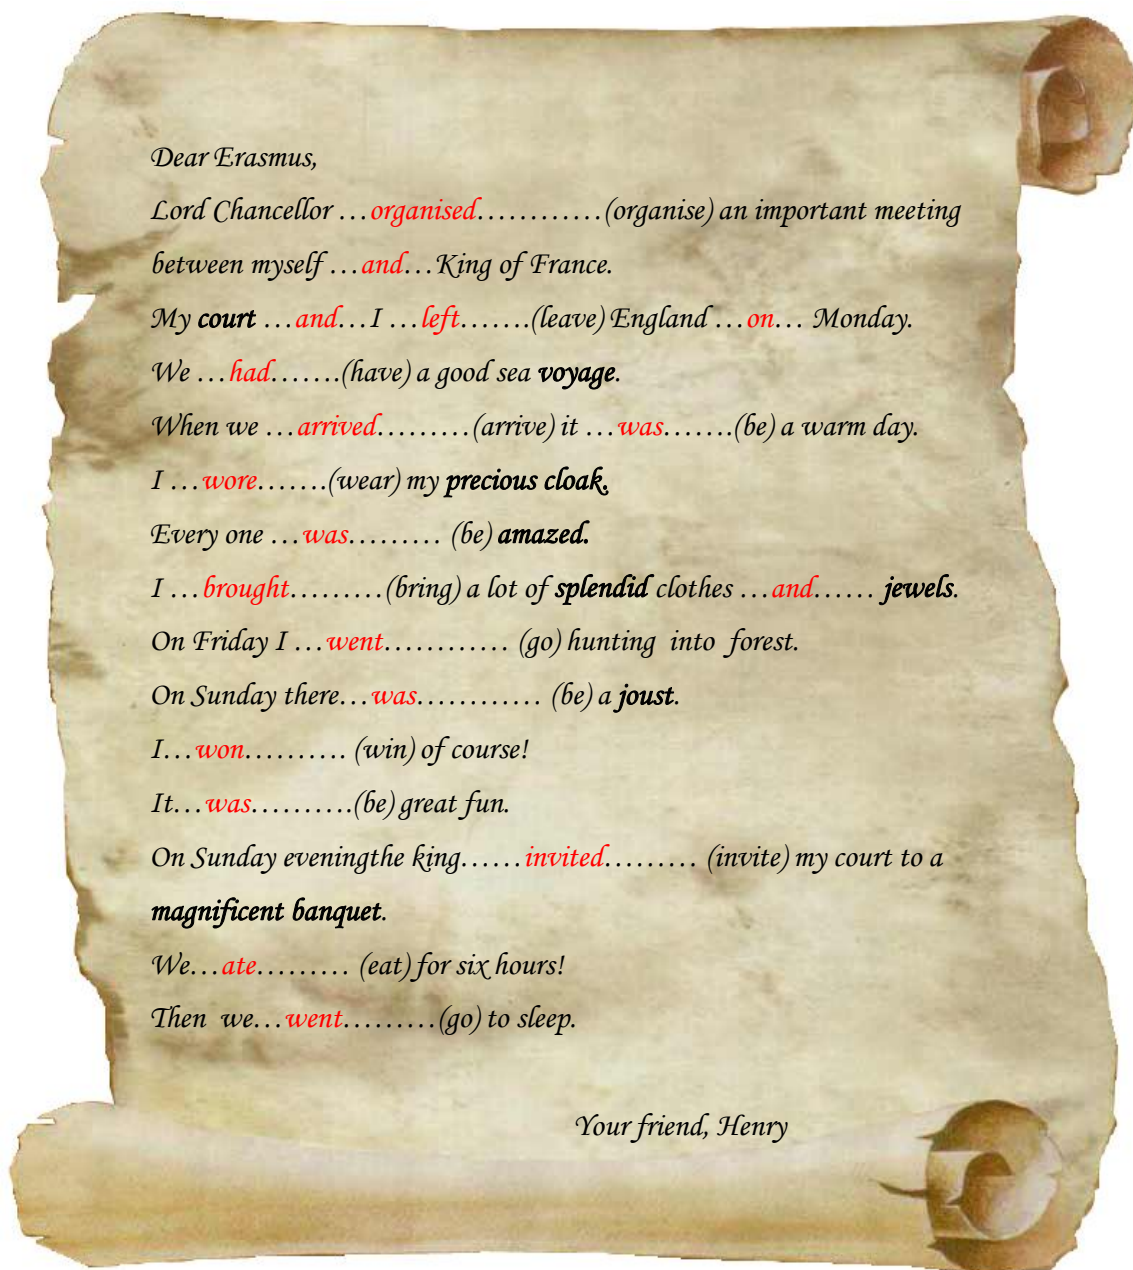 Dear Erasmus,
Lord Chancellor …organised…………(organise) an important meeting
between myself …and…King of France.
My court …and…I …left…….(leave) England …on… Monday.
We …had…….(have) a good sea voyage.
When we …arrived………(arrive) it …was…….(be) a warm day.
I …wore…….(wear) my precious cloak.
Every one …was……… (be) amazed.
I …brought………(bring) a lot of splendid clothes …and…… jewels.
On Friday I …went………… (go) hunting into forest.
On Sunday there…was………… (be) a joust.
I…won………. (win) of course!
It…was……….(be) great fun.
On Sunday eveningthe king……invited……… (invite) my court to a
magnificent banquet.
We…ate……… (eat) for six hours!
Then we…went………(go) to sleep.
Your friend, Henry